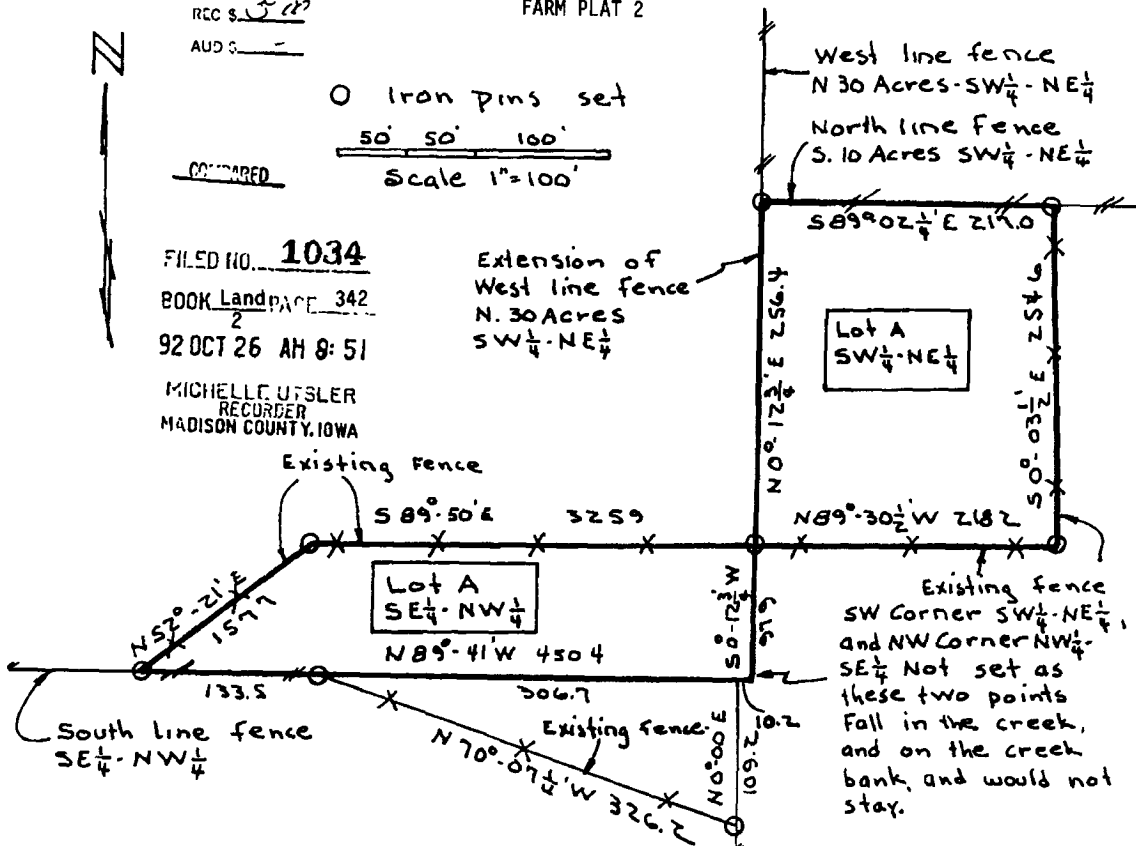 REC $
FARM PLAT 2
AUD $ -
N
O Iron pins set
50' 50' 100'
Scale 1"=100'
COMPARED
FILED NO. 1034
BOOK Land 2 PAGE 342
92 OCT 26 AM 8:51
MICHELLE UTSLER
RECORDER
MADISON COUNTY, IOWA
West line fence
N 30 Acres - SW¼ - NE¼
North line Fence
S. 10 Acres SW¼ - NE¼
S 89°02¼' E 217.0
Extension of
West line fence
N. 30 Acres
SW¼ - NE¼
N 0°-12¾' E 256.4
Lot A
SW¼ - NE¼
S 0°-03½' E 254 6
Existing Fence
S 89°-50' E 325 9
N 89°-30½' W 218 2
N 52°-21' E
157.7
Lot A
SE¼ - NW¼
S 0°-12¾' W
97.9
N 89°-41' W 450 4
133.5
306.7
10.2
South line fence
SE¼ - NW¼
Existing Fence
N 70°-07¼' W 326.2
N 0°-00 E
109.2
Existing fence
SW Corner SW¼ - NE¼,
and NW Corner NW¼ -
SE¼ Not set as
these two points
Fall in the creek,
and on the creek
bank, and would not
stay.